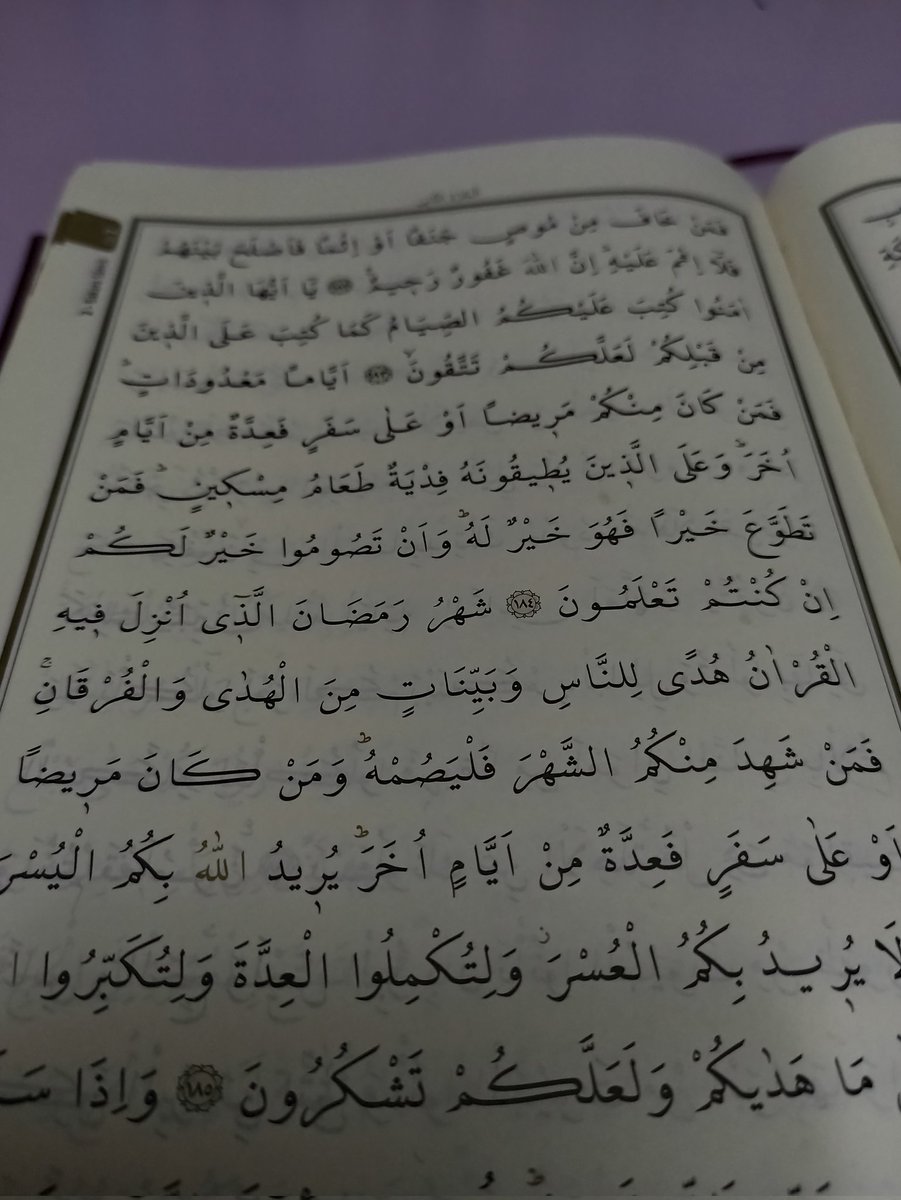 فَمَنْ خَافَ مِنْ مُوصٍ جَنَفًا اَوْ اِثْمًا فَاَصْلَحَ بَيْنَهُمْ
فَلَٓا اِثْمَ عَلَيْهِۜ اِنَّ اللّٰهَ غَفُورٌ رَحِيمٌ۟ ﴿١٨٢﴾ يَٓا اَيُّهَا الَّذ۪ينَ
اٰمَنُوا كُتِبَ عَلَيْكُمُ الصِّيَامُ كَمَا كُتِبَ عَلَى الَّذ۪ينَ
مِنْ قَبْلِكُمْ لَعَلَّكُمْ تَتَّقُونَۙ ﴿١٨٣﴾ اَيَّامًا مَعْدُودَاتٍۜ
فَمَنْ كَانَ مِنْكُمْ مَر۪يضًا اَوْ عَلٰى سَفَرٍ فَعِدَّةٌ مِنْ اَيَّامٍ
اُخَرَۜ وَعَلَى الَّذ۪ينَ يُط۪يقُونَهُ فِدْيَةٌ طَعَامُ مِسْك۪ينٍۜ فَمَنْ
تَطَوَّعَ خَيْرًا فَهُوَ خَيْرٌ لَهُۜ وَاَنْ تَصُومُوا خَيْرٌ لَكُمْ
اِنْ كُنْتُمْ تَعْلَمُونَ ﴿١٨٤﴾ شَهْرُ رَمَضَانَ الَّذ۪ٓى اُنْزِلَ ف۪يهِ
الْقُرْاٰنُ هُدًى لِلنَّاسِ وَبَيِّنَاتٍ مِنَ الْهُدٰى وَالْفُرْقَانِۚ
فَمَنْ شَهِدَ مِنْكُمُ الشَّهْرَ فَلْيَصُمْهُۜ وَمَنْ كَانَ مَر۪يضًا
اَوْ عَلٰى سَفَرٍ فَعِدَّةٌ مِنْ اَيَّامٍ اُخَرَۜ يُر۪يدُ اللّٰهُ بِكُمُ الْيُسْرَ
لَا يُر۪يدُ بِكُمُ الْعُسْرَۘ وَلِتُكْمِلُوا الْعِدَّةَ وَلِتُكَبِّرُوا
مَا هَدٰيكُمْ وَلَعَلَّكُمْ تَشْكُرُونَ ﴿١٨٥﴾ وَاِذَا